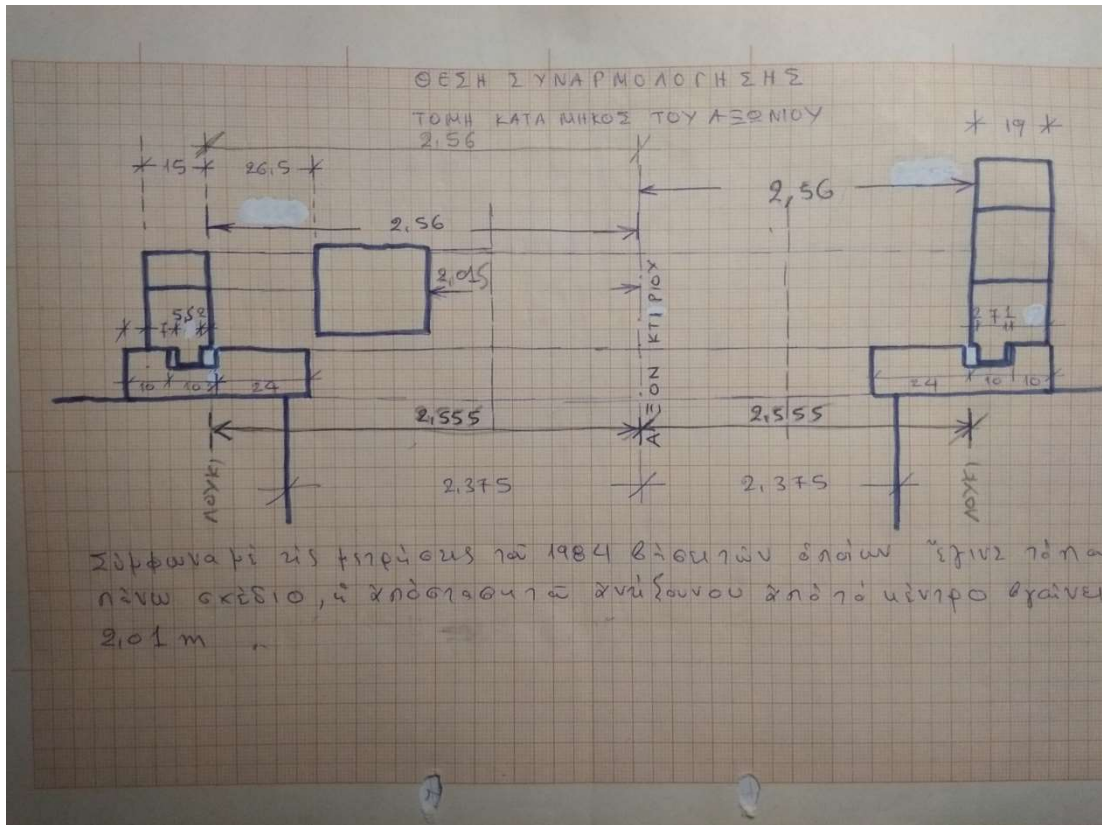 ΘΕΣΗ ΣΥΝΑΡΜΟΛΟΓΗΣΗΣ
ΤΟΜΗ ΚΑΤΑ ΜΗΚΟΣ ΤΟΥ ΑΞΩΝΙΟΥ
2,56
19
15 26,5
2,56
2,56
2,015
ΑΞΩΝ ΚΤΙΡΙΟΥ
7 5 5 2
2 7 1
10 10 24
24 10 10
2,555 2,555
ΛΟΥΚΙ ΛΟΥΚΙ
2,375 2,375
Σύμφωνα μέ τίς μετρήσεις τοῦ 1984 βάσει τῶν ὁποίων ἔγινε τό πα
πάνω σχέδιο, ἡ ἀπόσταση τοῦ ἀπό τό κέντρο βγαίνει
2,01 m